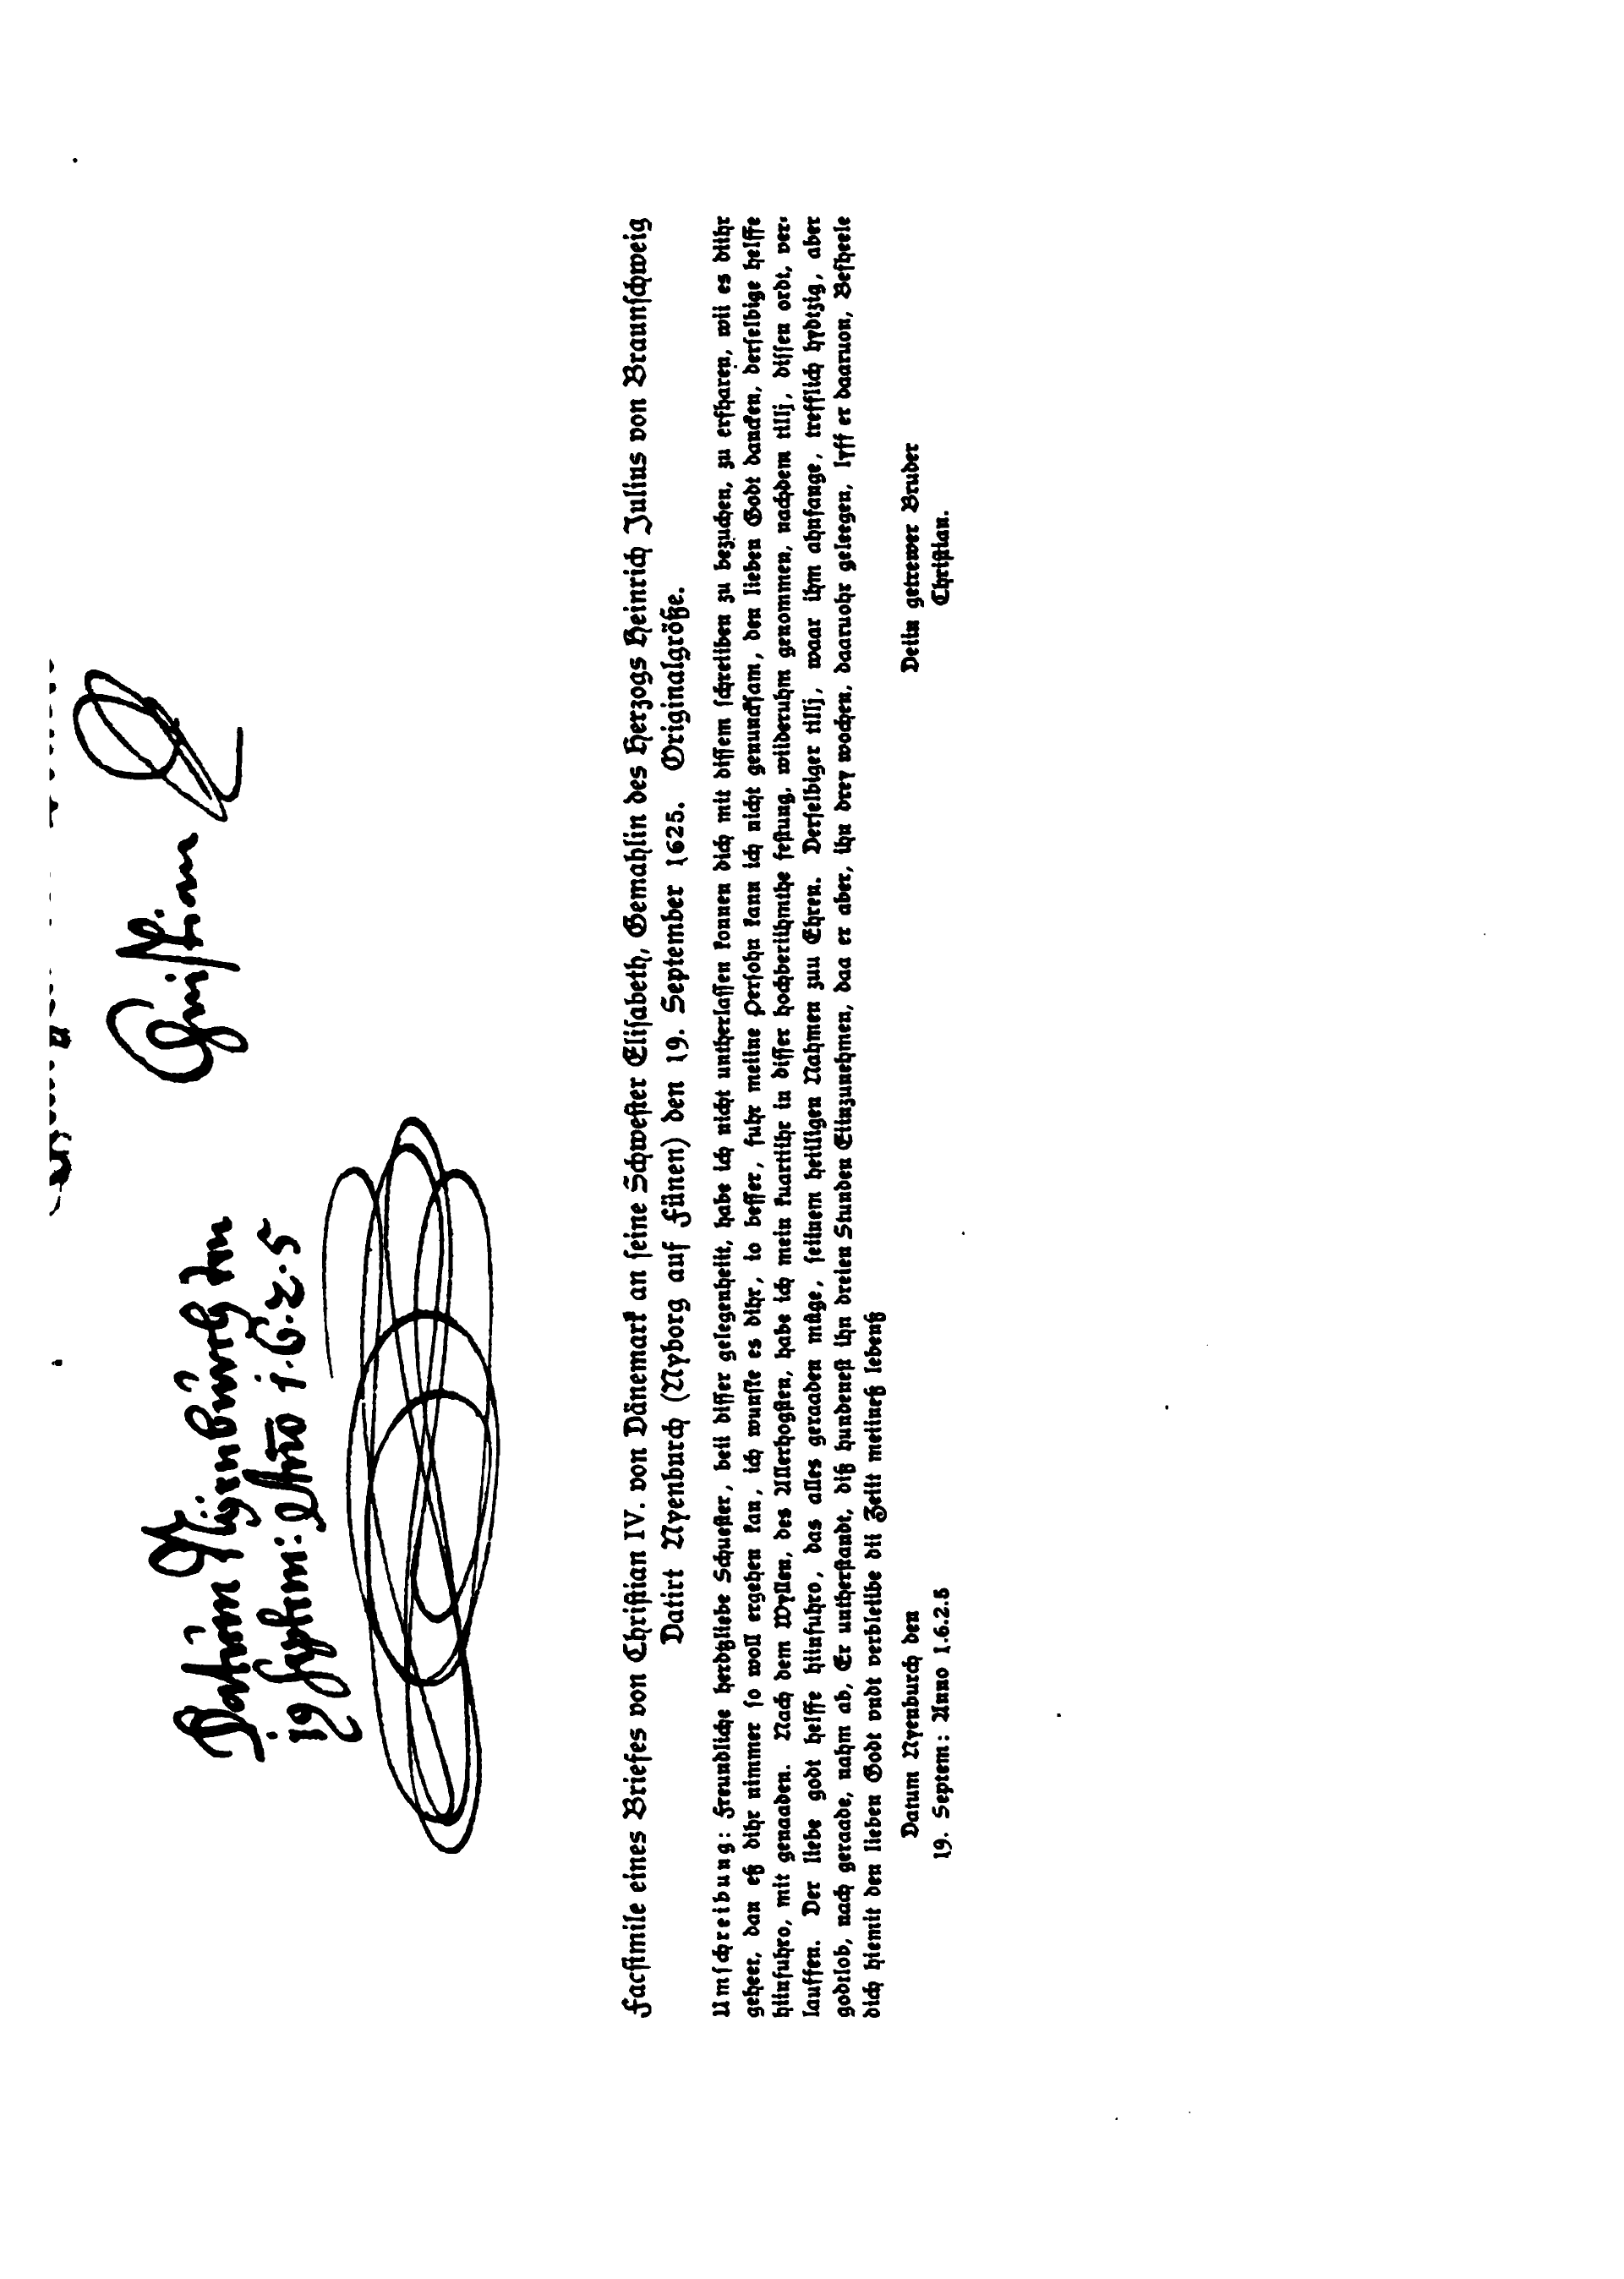 Christian
Datum Nyenburch den
19 Septem: Anno 1.6.2.5
Facsimile eines Briefes von Christian IV. von Dänemark an seine Schwester Elisabeth, Gemahlin des Herzogs Heinrich Julius von Braunschweig
Datirt Nyenburch (Nyborg auf Fünen) den 19. September 1625. Originalgröße.
Umschreibung: Freundliche herdtzliebe Schuester, beii disser gelegenheiit, habe ich nicht untherlassen konnen dich mit dissem schreiiben zu bezuchen, zu erfharen, wii es diihr
geheet, dan eß dihr nimmer so woll ergehen kan, ich wunste es dihr, to besser, fuhr meiine Persohn kann ich nicht genundsam, den lieben Godt dancken, derselbige helffe
hiinfuhro, mit genaaden. Nach dem Wyllen, des Allerhogsten, habe ich mein kuartiihr in disser hochberiihmthe festung, wiideruhm genommen, nachdem tillj, dissen ordt, ver-
lauffen. Der liebe godt helffe hiinfuhro, das alles geraaden müge, seiinem heiiligen Nahmen zuu Ehren. Derselbiger tillj, waar ihm ahnfange, trefflich hydtzig, aber
godtlob, nach geraade, nahm ab, Er untherstandt, diß hundenest ihn dreien Stunden Eiinzunehmen, daa er aber, ihn drey wochen, daaruohr geleegen, lyff er daaruon, Befheele
dich hiemit den lieben Godt vndt verbleiibe dii Zeiit meiineß lebenß
Deiin getrewer Bruder
Christian.
Datum Nyenburch den
19. Septem: Anno 1.6.2.5